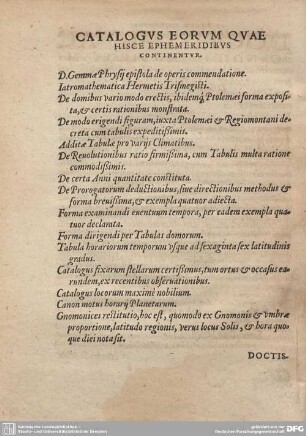 CATALOGVS EORVM QVAE
HISCE EPHEMERIDIBVS
CONTINENTVR.
D. Gemmæ Phrysij epistola de operis commendatione.
Iatromathematica Hermetis Trismegisti.
De domibus vario modo erectis, ibidemq; Ptolemæi forma exposi-
ta, & certis rationibus monstrata.
De modo erigendi figuram, iuxta Ptolemæi & Regiomontani de-
creta cum tabulis expeditißimis.
Additæ Tabulæ pro varijs Climatibus.
De Reuolutionibus ratio firmißima, cum Tabulis multa ratione
commodißimis.
De certa Anni quantitate constituta.
De Prorogatorum deductionibus, siue directionibus methodus &
forma breuißima, & exempla quatuor adiecta.
Forma examinandi euentuum tempora, per eadem exempla qua-
tuor declarata.
Forma dirigendi per Tabulas domorum.
Tabula horariorum temporum vsque ad sexaginta sex latitudinis
gradus.
Catalogus fixarum stellarum certißimus, tum ortus & occasus ea-
rundem, ex recentibus obseruationibus.
Catalogus locorum maximè nobilium.
Canon motus horarij Planetarum.
Gnomonices restitutio, hoc est, quomodo ex Gnomonis & vmbræ
proportione, latitudo regionis, verus locus Solis, & hora quo-
que diei nota sit.
DOCTIS.
Sächsische Landesbibliothek -
Staats- und Universitätsbibliothek Dresden
gefördert von der
Deutschen Forschungsgemeinschaft
DFG